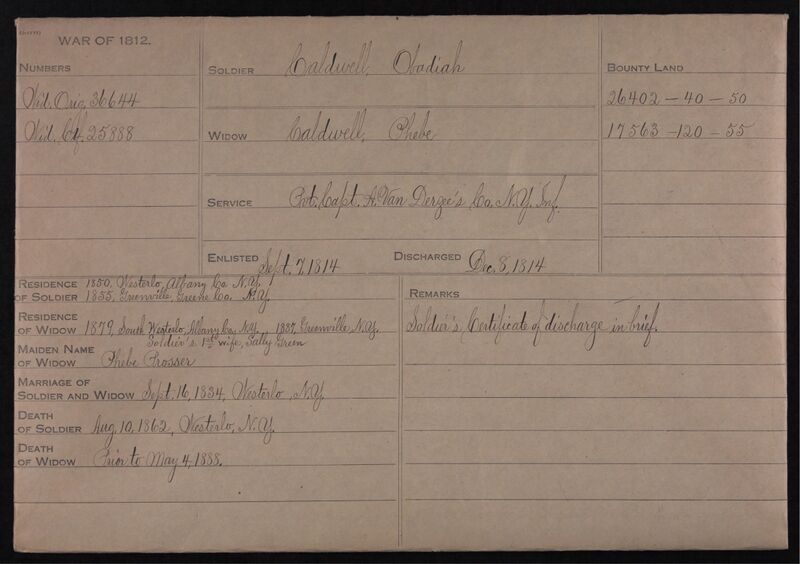 WAR OF 1812.
NUMBERS
Wid. Orig. 36644
Wid. Ctf. 25888
SOLDIER Caldwell, Obadiah
WIDOW Caldwell, Phebe
SERVICE Pvt. Capt. A. Van Derzee's Co. N.Y. Inf.
ENLISTED Sept. 7, 1814 DISCHARGED Dec. 8, 1814
BOUNTY LAND
26402 - 40 - 50
17563 - 120 - 55
RESIDENCE OF SOLDIER 1850, Westerlo, Albany Co. N.Y.
1855, Greenville, Greene Co. N.Y.
RESIDENCE OF WIDOW 1879, South Westerlo, Albany Co., N.Y., 1887, Greenville, N.Y.
Soldier's 1st wife, Sally Green
MAIDEN NAME OF WIDOW Phebe Prosser
MARRIAGE OF SOLDIER AND WIDOW Sept. 16, 1834, Westerlo, N.Y.
DEATH OF SOLDIER Aug. 10, 1862, Westerlo, N.Y.
DEATH OF WIDOW Prior to May 4, 1888.
REMARKS
Soldier's Certificate of discharge in brief.